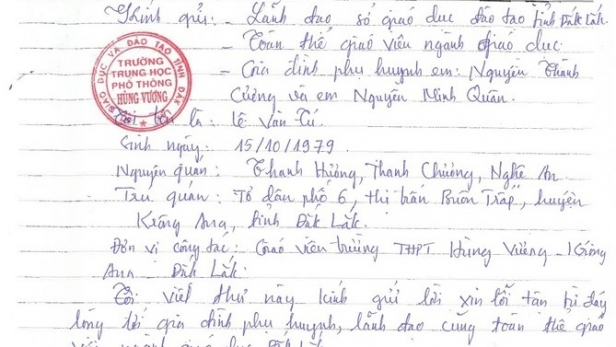 Kính gửi: - Lãnh đạo sở giáo dục đào tạo tỉnh Đăk Lăk.
- Toàn thể giáo viên ngành giáo dục.
- Gia đình phụ huynh em: Nguyễn Thành
Cường và em Nguyễn Minh Quân.
SỞ GIÁO DỤC VÀ ĐÀO TẠO TỈNH ĐĂK LĂK
TRƯỜNG
TRUNG HỌC
PHỔ THÔNG
HÙNG VƯƠNG
Tôi tên là: Lê Văn Tú
Sinh ngày: 15/10/1979
Nguyên quán: Thanh Hương, Thanh Chương, Nghệ An
Trú quán: Tổ dân phố 6, thị trấn Buôn Trấp, huyện
Krông Ana, tỉnh Đăk Lăk.
Đơn vị công tác: Giáo viên trường THPT Hùng Vương - Krông
Ana Đăk Lăk.
Tôi viết thư này kính gửi lời xin lỗi tận tự đáy
lòng tới gia đình phụ huynh, lãnh đạo cùng toàn thể giáo
viên ngành giáo dục Đăk Lăk.